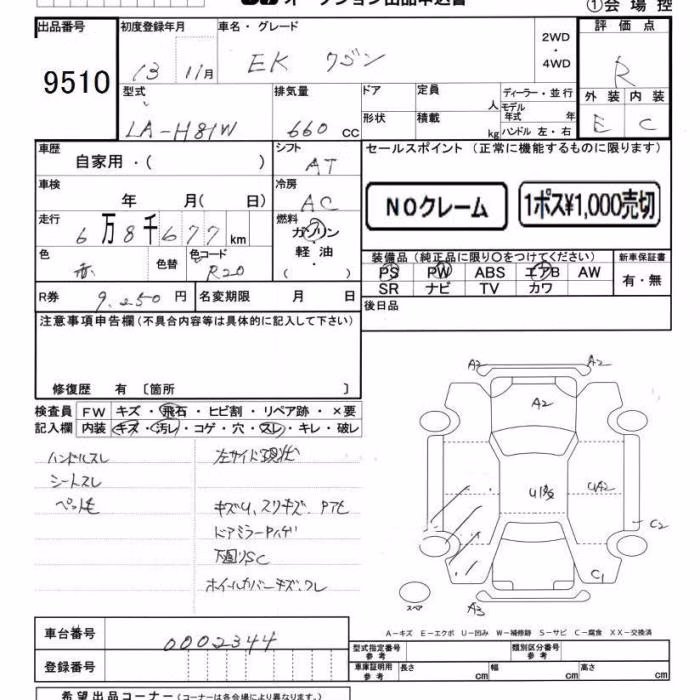 オークション出品申込書
①会場控
出品番号 初度登録年月 車名・グレード 2WD ・ 4WD 評価点
9510 13 11月 EK ワゴン R
型式 排気量 ドア 定員 人 ディーラー・並行 外装 内装
LA-H81W 660 cc 形状 積載 kg モデル年式 年 ハンドル 左・右 E C
車歴 自家用・( ) シフト AT セールスポイント (正常に機能するものに限ります)
車検 年 月( 日) 冷房 AC NOクレーム 1ポス¥1,000売切
走行 6万8千677km 燃料 ガソリン 軽油 ( )
色 赤 色替 色コード R20 装備品 (純正品に限り○をつけてください) 新車保証書
PS PW ABS エアB AW 有・無
SR ナビ TV カワ
R券 9,250円 名変期限 月 日 後日品
注意事項申告欄 (不具合内容等は具体的に記入して下さい)
修復歴 有 〔箇所 〕
検査員 FW キズ・飛石・ヒビ割・リペア跡・×要
記入欄 内装 キズ・汚レ・コゲ・穴・スレ・キレ・破レ
ハンドルスレ 左サイド現状
シートスレ
ペット毛 キズU、スリキズ、
下廻りSC
ホイールカバーキズ、ワレ
A2 A2
A2
UA2
C2
C1
スペア A3
A−キズ E−エクボ U−凹み W−補修跡 S−サビ C−腐食 XX−交換済
車台番号 0002344
型式指定番号 参考 類別区分番号 参考
登録番号 車庫証明用 参考 長さ cm 幅 cm 高さ cm
希望出品コーナー (コーナーは各会場により異なります。)